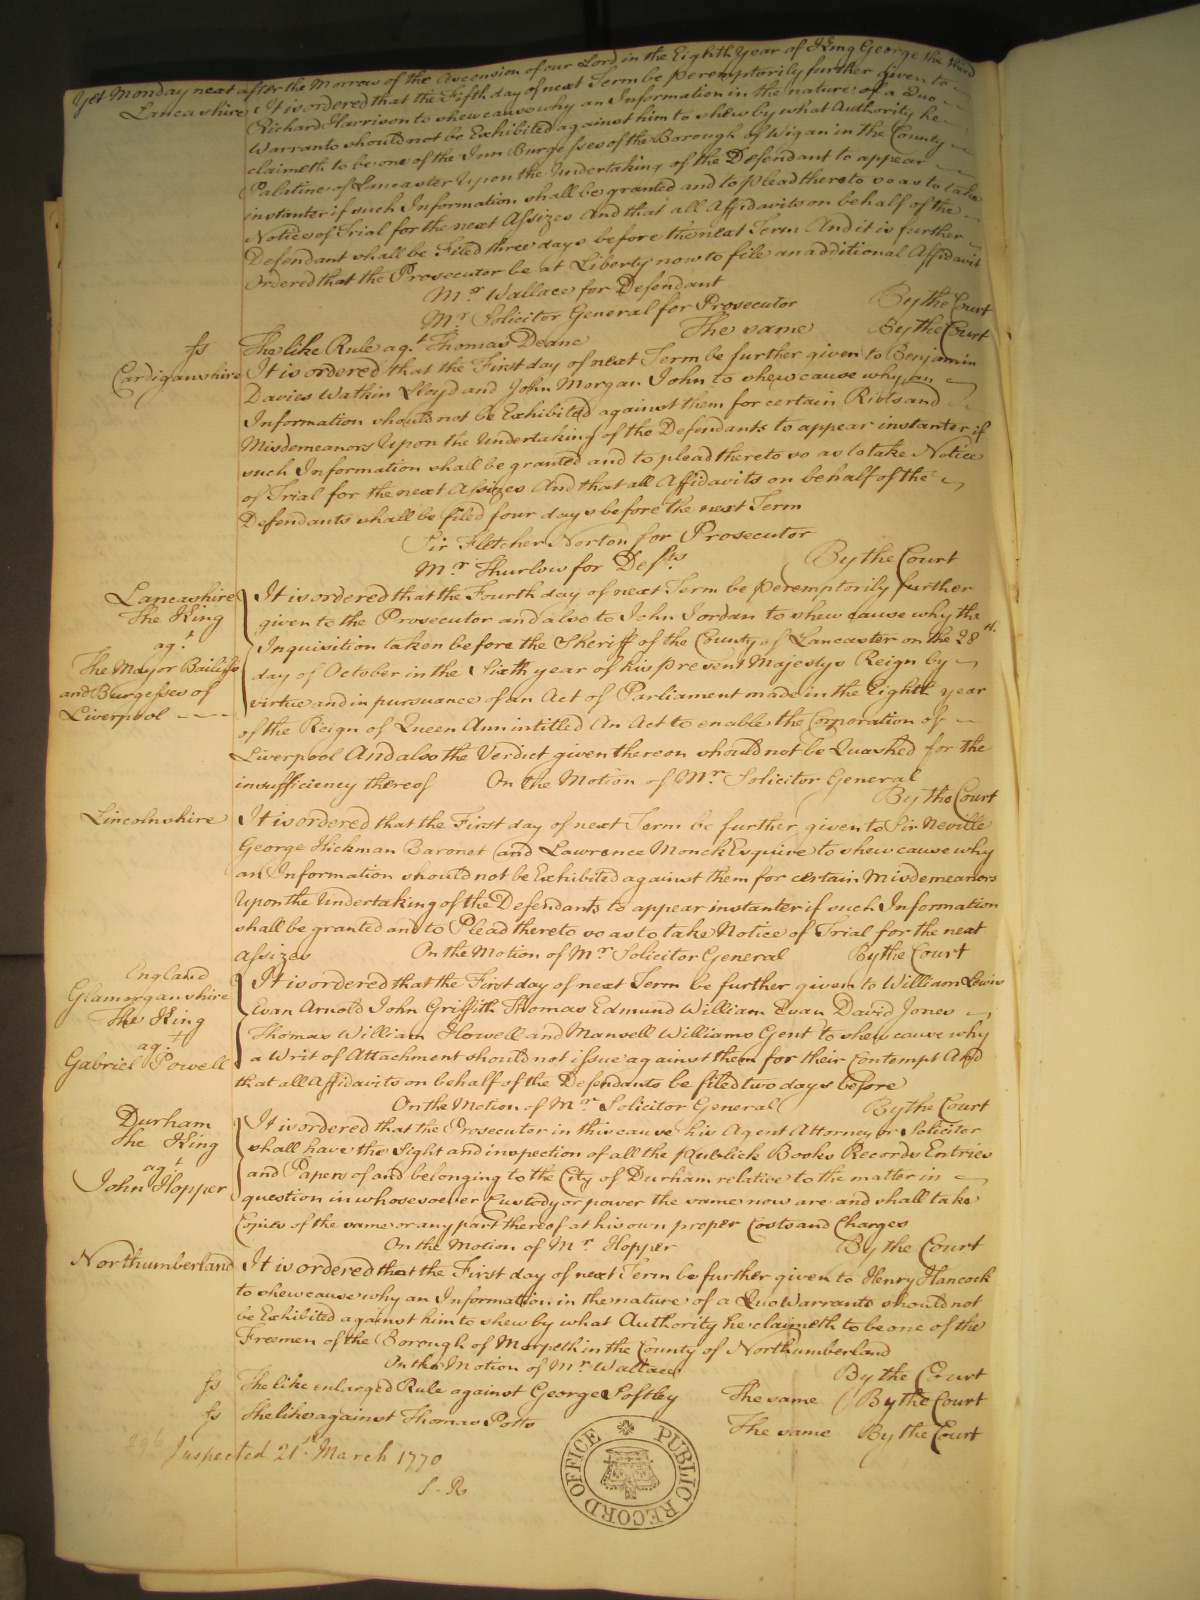 Yet Monday next after the Morrow of the Ascension of our Lord in the Eighth Year of King George the third
Lancashire It is ordered that the Fifth day of next Term be peremptorily further given to
Richard Harrison to shew cause why an Information in the nature of a Quo
Warranto should not be Exhibited against him to shew by what Authority he
claimeth to be one of the Inn Burgesses of the Borough of Wigan in the County
Palatine of Lancaster Upon the Undertaking of the Defendant to appear
instanter if such Information shall be granted and to plead thereto so as to take
Notice of Trial for the next Assizes And that all Affidavits on behalf of the
Defendant shall be Filed three days before the next Term And it is further
Ordered that the Prosecutor be at Liberty now to file an additional Affidavit
Mr. Wallace for Defendant
Mr. Solicitor General for Prosecutor By the Court
ss The like Rule agt. Thomas Deane The same By the Court
Cardiganshire It is ordered that the First day of next Term be further given to Benjamin
Davies Watkin Lloyd and John Morgan John to shew cause why an
Information should not be Exhibited against them for certain Riots and
Misdemeanors Upon the Undertaking of the Defendants to appear instanter if
such Information shall be granted and to plead thereto so as to take Notice
of Trial for the next Assizes And that all Affidavits on behalf of the
Defendants shall be filed four days before the next Term
Sir Fletcher Norton for Prosecutor
Mr. Thurlow for Defts. By the Court
Lancashire It is ordered that the Fourth day of next Term be peremptorily further
The King given to the Prosecutor and also to John Jordan to shew cause why the
agt. Inquisition taken before the Sheriff of the County of Lancaster on the 28th.
The Mayor Bailiffs day of October in the Sixth year of his present Majestys Reign by
and Burgesses of virtue and in pursuance of an Act of Parliament made in the Eighth year
Liverpool of the Reign of Queen Ann intitled An Act to enable the Corporation of
Liverpool And also the Verdict given thereon should not be Quashed for the
insufficiency thereof On the Motion of Mr. Solicitor General
By the Court
Lincolnshire It is ordered that the First day of next Term be further given to Sir Neville
George Hickman Baronet and Lawrence Monck Esquire to shew cause why
an Information should not be Exhibited against them for certain Misdemeanors
Upon the Undertaking of the Defendants to appear instanter if such Information
shall be granted and to Plead thereto so as to take Notice of Trial for the next
Assizes On the Motion of Mr. Solicitor General By the Court
England It is ordered that the First day of next Term be further given to William Lewis
Glamorganshire Evan Arnold John Griffith Thomas Edmund William Evan David Jones
The King Thomas William Howell and Mansell Williams Gent to shew cause why
agt. a Writ of Attachment should not issue against them for their Contempt And
Gabriel Powell that all Affidavits on behalf of the Defendants be filed two days before
On the Motion of Mr. Solicitor General By the Court
Durham It is ordered that the Prosecutor in this cause his Agent Attorney or Solicitor
The King shall have the Sight and inspection of all the publick Books Records Entries
agt. and Papers of and belonging to the City of Durham relative to the matter in
John Hopper question in whosesoever Custody or power the same now are and shall take
Copies of the same or any part thereof at his own proper Costs and Charges
On the Motion of Mr. Hopper By the Court
Northumberland It is ordered that the First day of next Term be further given to Henry Hancock
to shew cause why an Information in the nature of a Quo Warranto should not
be Exhibited against him to shew by what Authority he claimeth to be one of the
Freemen of the Borough of Morpeth in the County of Northumberland
On the Motion of Mr. Wallace By the Court
ss The like enlarged Rule against George Softley The same By the Court
ss The like against Thomas Potts The same By the Court
Inspected 21st March 1770
S. R
PUBLIC RECORD OFFICE